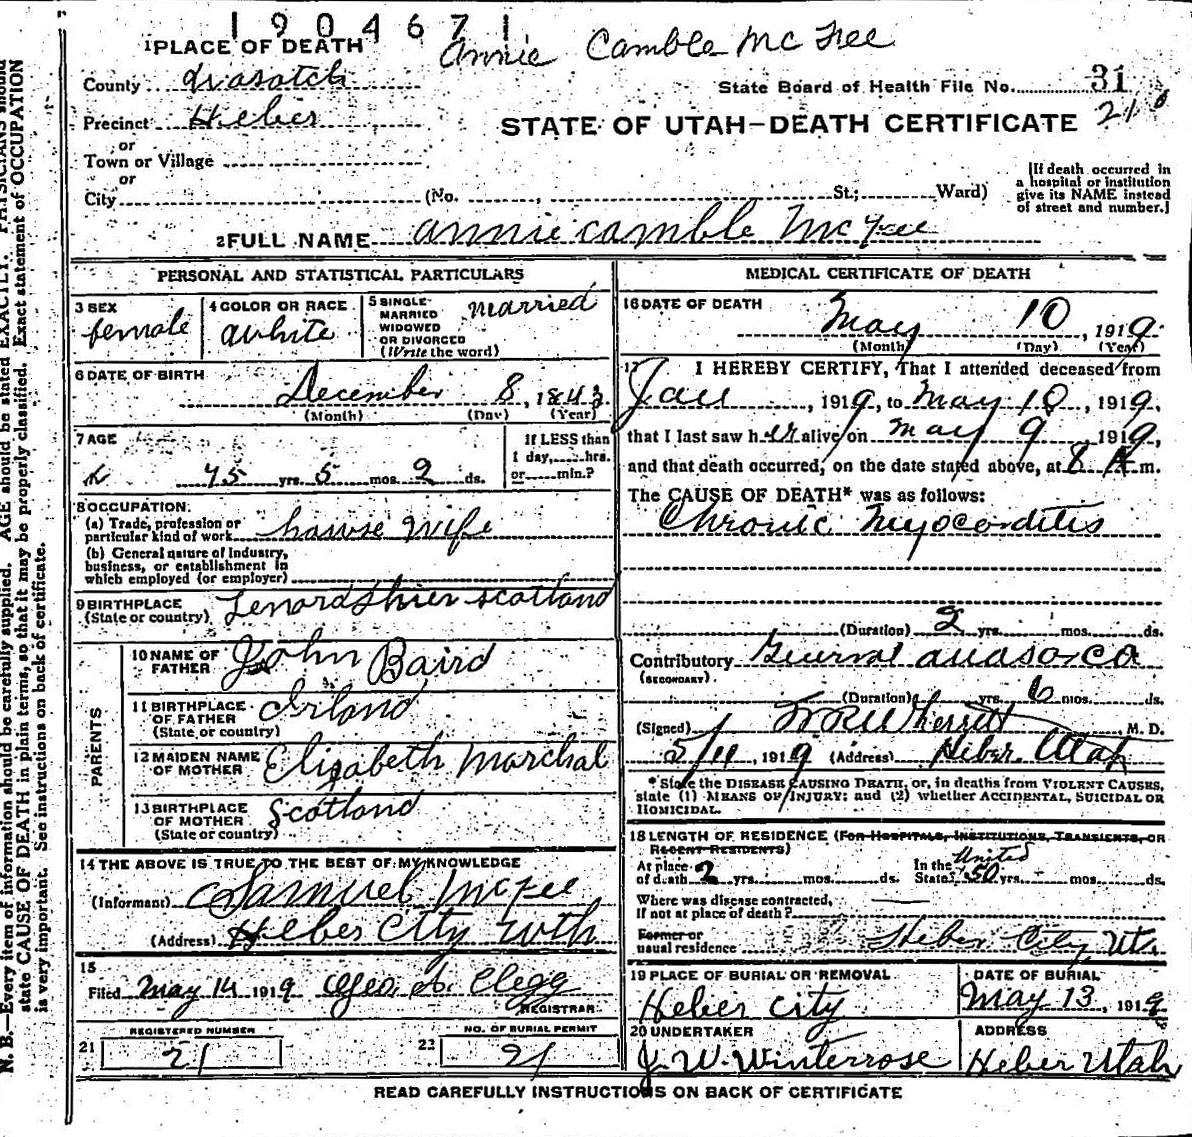 1904671
1 PLACE OF DEATH Annie Camble McFee
County Wasatch
State Board of Health File No. 31
Precinct Heber
210
STATE OF UTAH—DEATH CERTIFICATE
or
Town or Village
or
City (No. , St.; Ward)
[If death occurred in
a hospital or institution
give its NAME instead
of street and number.]
2 FULL NAME Annie Camble McFee
PERSONAL AND STATISTICAL PARTICULARS
3 SEX
female
4 COLOR OR RACE
white
5 SINGLE
MARRIED
WIDOWED
OR DIVORCED
(Write the word)
married
6 DATE OF BIRTH
December 8, 1843
(Month) (Day) (Year)
7 AGE
75 yrs. 5 mos. 2 ds.
If LESS than
1 day, hrs.
or min.?
8 OCCUPATION
(a) Trade, profession or
particular kind of work house wife
(b) General nature of Industry,
business, or establishment in
which employed (or employer)
9 BIRTHPLACE
(State or country) Lenardshier Scotland
PARENTS
10 NAME OF
FATHER John Baird
11 BIRTHPLACE
OF FATHER
(State or country) Irland
12 MAIDEN NAME
OF MOTHER Elizabeth Marchal
13 BIRTHPLACE
OF MOTHER
(State or country) Scotland
14 THE ABOVE IS TRUE TO THE BEST OF MY KNOWLEDGE
(Informant) Samuel McFee
(Address) Heber City Utah
15
Filed May 14 1919 Geo. A. Clegg
REGISTRAR
REGISTERED NUMBER
21 21
NO. OF BURIAL PERMIT
22 21
MEDICAL CERTIFICATE OF DEATH
16 DATE OF DEATH
May 10, 1919
(Month) (Day) (Year)
17 I HEREBY CERTIFY, That I attended deceased from
Jan , 1919, to May 10, 1919,
that I last saw her alive on May 9, 1919,
and that death occurred, on the date stated above, at 8 A m.
The CAUSE OF DEATH* was as follows:
Chronic Myocarditis
(Duration) 2 yrs. mos. ds.
Contributory General anasarca
(SECONDARY)
(Duration) yrs. 6 mos. ds.
(Signed) Wherritt, M. D.
5/11, 1919 (Address) Heber Utah
* State the DISEASE CAUSING DEATH, or, in deaths from VIOLENT CAUSES,
state (1) MEANS OF INJURY; and (2) whether ACCIDENTAL, SUICIDAL OR
HOMICIDAL.
18 LENGTH OF RESIDENCE (FOR HOSPITALS, INSTITUTIONS, TRANSIENTS, OR
RECENT RESIDENTS)
At place
of death 2 yrs. mos. ds.
In the United
State 50 yrs. mos. ds.
Where was disease contracted,
if not at place of death?
Former or
usual residence Heber City Ut.
19 PLACE OF BURIAL OR REMOVAL
Heber City
DATE OF BURIAL
May 13, 1919
20 UNDERTAKER
J. W. Winterrose
ADDRESS
Heber Utah
READ CAREFULLY INSTRUCTIONS ON BACK OF CERTIFICATE
N. B.—Every item of information should be carefully supplied. AGE should be stated EXACTLY. PHYSICIANS should
state CAUSE OF DEATH in plain terms, so that it may be properly classified. Exact statement of OCCUPATION
is very important. See instructions on back of certificate.